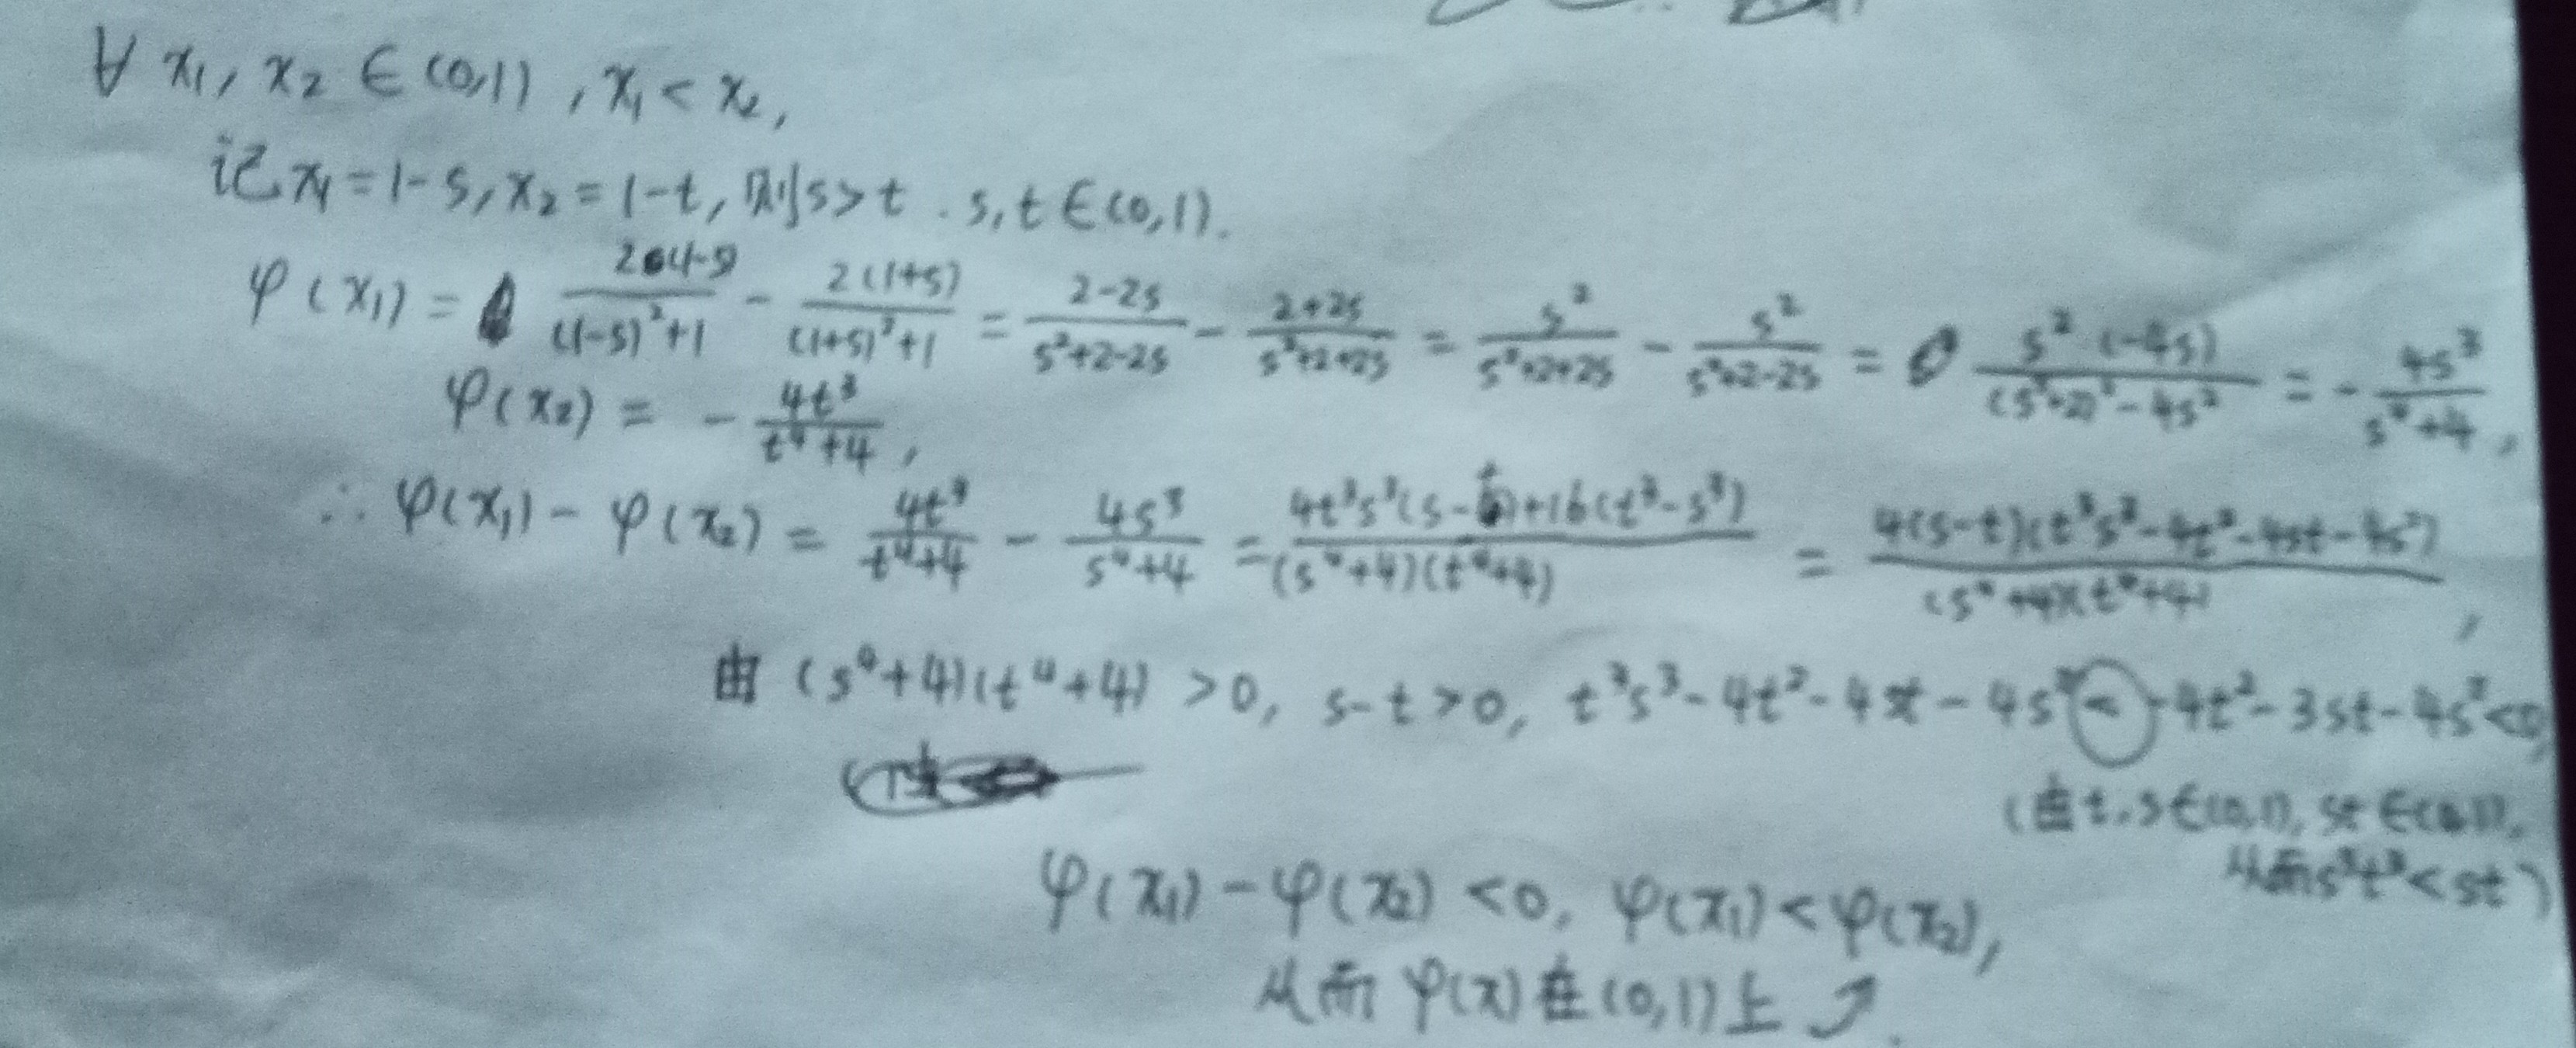 ∀ x₁, x₂ ∈ (0,1), x₁ < x₂,
记 x₁ = 1-s, x₂ = 1-t, 则 s > t. s, t ∈ (0,1).
φ(x₁) = 2(1-s)/((1-s)²+1) - 2(1+s)/((1+s)²+1) = (2-2s)/(s²+2-2s) - (2+2s)/(s²+2+2s) = s²/(s²+2+2s) - s²/(s²+2-2s) = s²(-4s)/((s²+2)²-4s²) = -4s³/(s⁴+4),
φ(x₂) = -4t³/(t⁴+4),
∴ φ(x₁) - φ(x₂) = 4t³/(t⁴+4) - 4s³/(s⁴+4) = (4t³s³(s-t)+16(t³-s³))/((s⁴+4)(t⁴+4)) = 4(s-t)(t³s³-4t²-4st-4s²)/((s⁴+4)(t⁴+4)),
由 (s⁴+4)(t⁴+4) > 0, s-t > 0, t³s³-4t²-4st-4s² < -4t²-3st-4s² < 0
(由 t,s∈(0,1), st∈(0,1),
从而 s³t³ < st)
φ(x₁) - φ(x₂) < 0, φ(x₁) < φ(x₂),
从而 φ(x) 在 (0,1) 上 ↗.